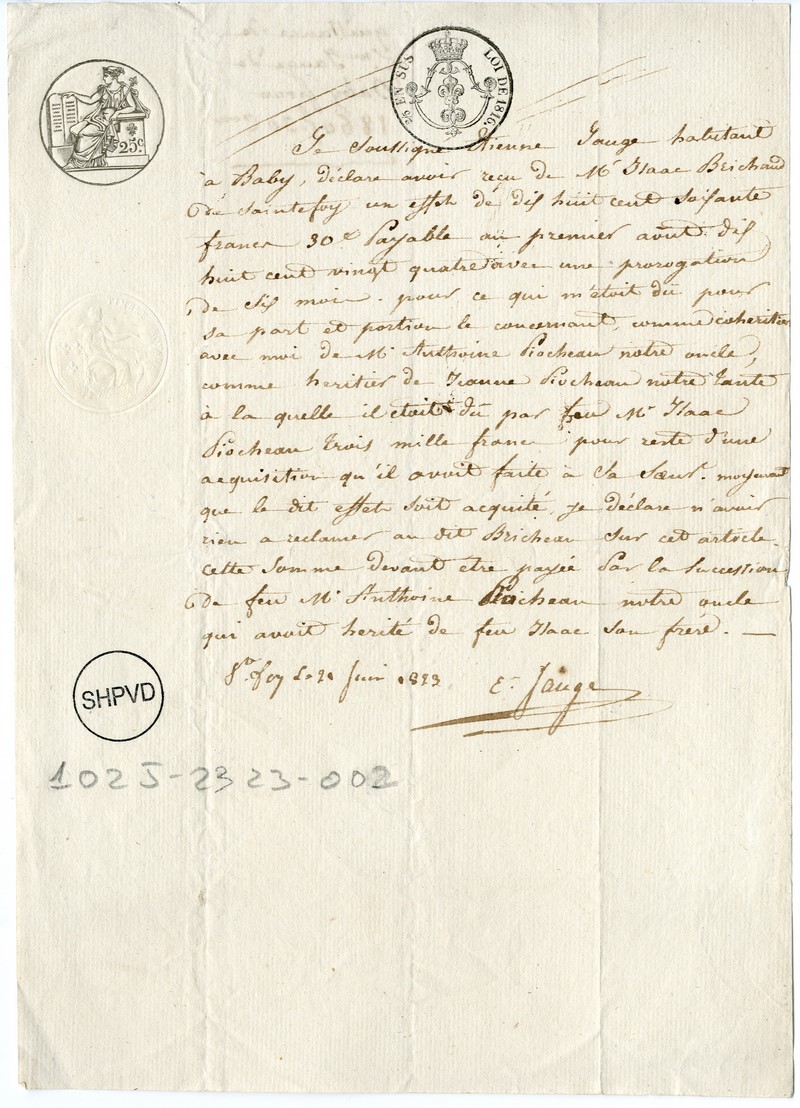 25c
10e EN SUS LOI DE 1816.
Je soussigné Etienne Jauge habitant
à Baby, déclare avoir reçu de Mr Isaac Brichaud
de Saintefoy un effet de dis huit cent soisante
francs 30c Payable au premier août dis
huit cent vingt quatre avec une prorogation
de sis mois. pour ce qui m'étoit dû pour
sa part et portion le concernant, comme coheritier
avec moi de Mr Anthoine Piocheau notre oncle,
comme heritier de Jeanne Piocheau notre tante
à la quelle il etoit dû par feu Mr Isaac
Piocheau trois mille francs pour reste d'une
acquisition qu'il avoit faite à sa Sœur. moyenant
que le dit effet soit acquité, je déclare n'avoir
rien a reclamer au dit Bricheau sur cet article.
cette somme devant etre payée Par la succession
de feu Mr Anthoine Piocheau notre oncle
qui avoit herité de feu Isaac son frére. —
Ste foy Le 21 Juin 1823 E. Jauge
SHPVD
102J-2323-002